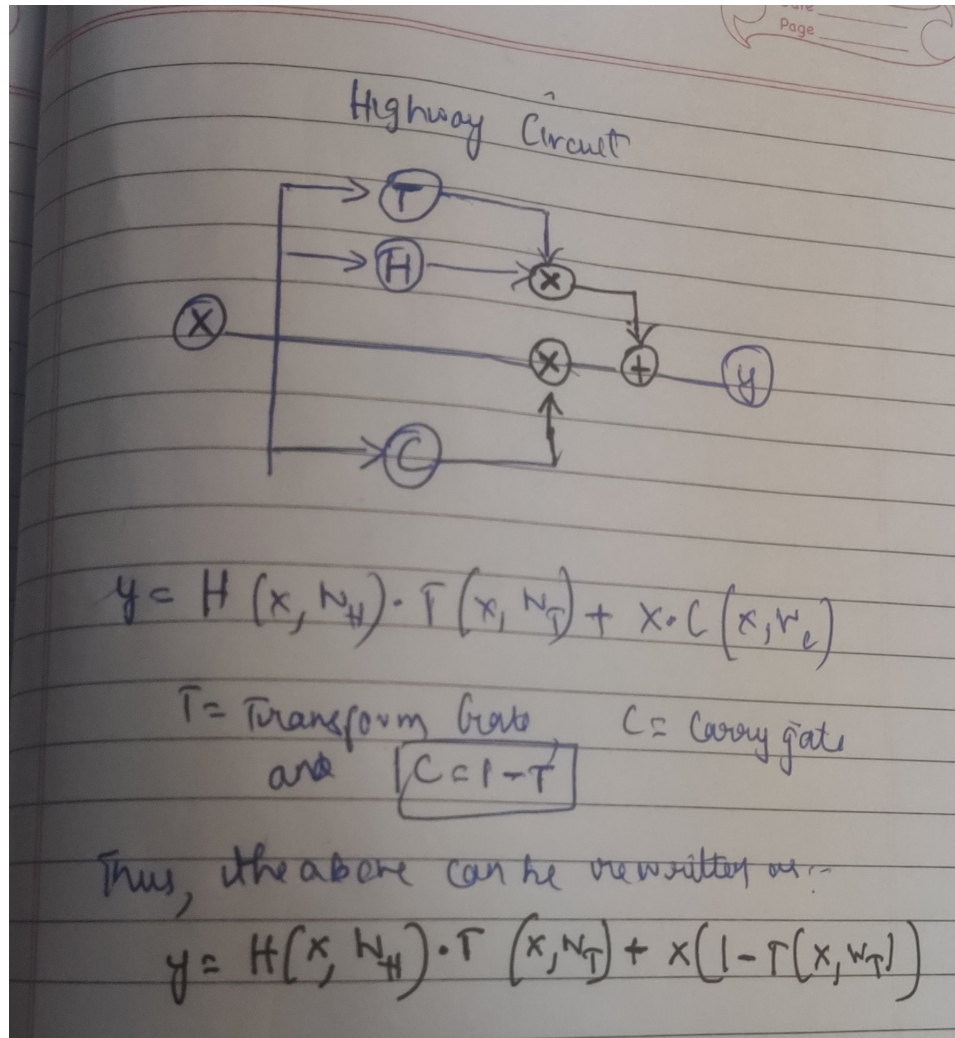 Page
Highway Circuit
T
H
X
X
X
+
y
C
y = H (x, W_H) · T (x, W_T) + X · C (x, W_c)
T = Transform Gate, C = Carry gate
and C = 1 - T
Thus, the above can be rewritten as :-
y = H(x, W_H) · T (x, W_T) + x(1 - T(x, W_T))